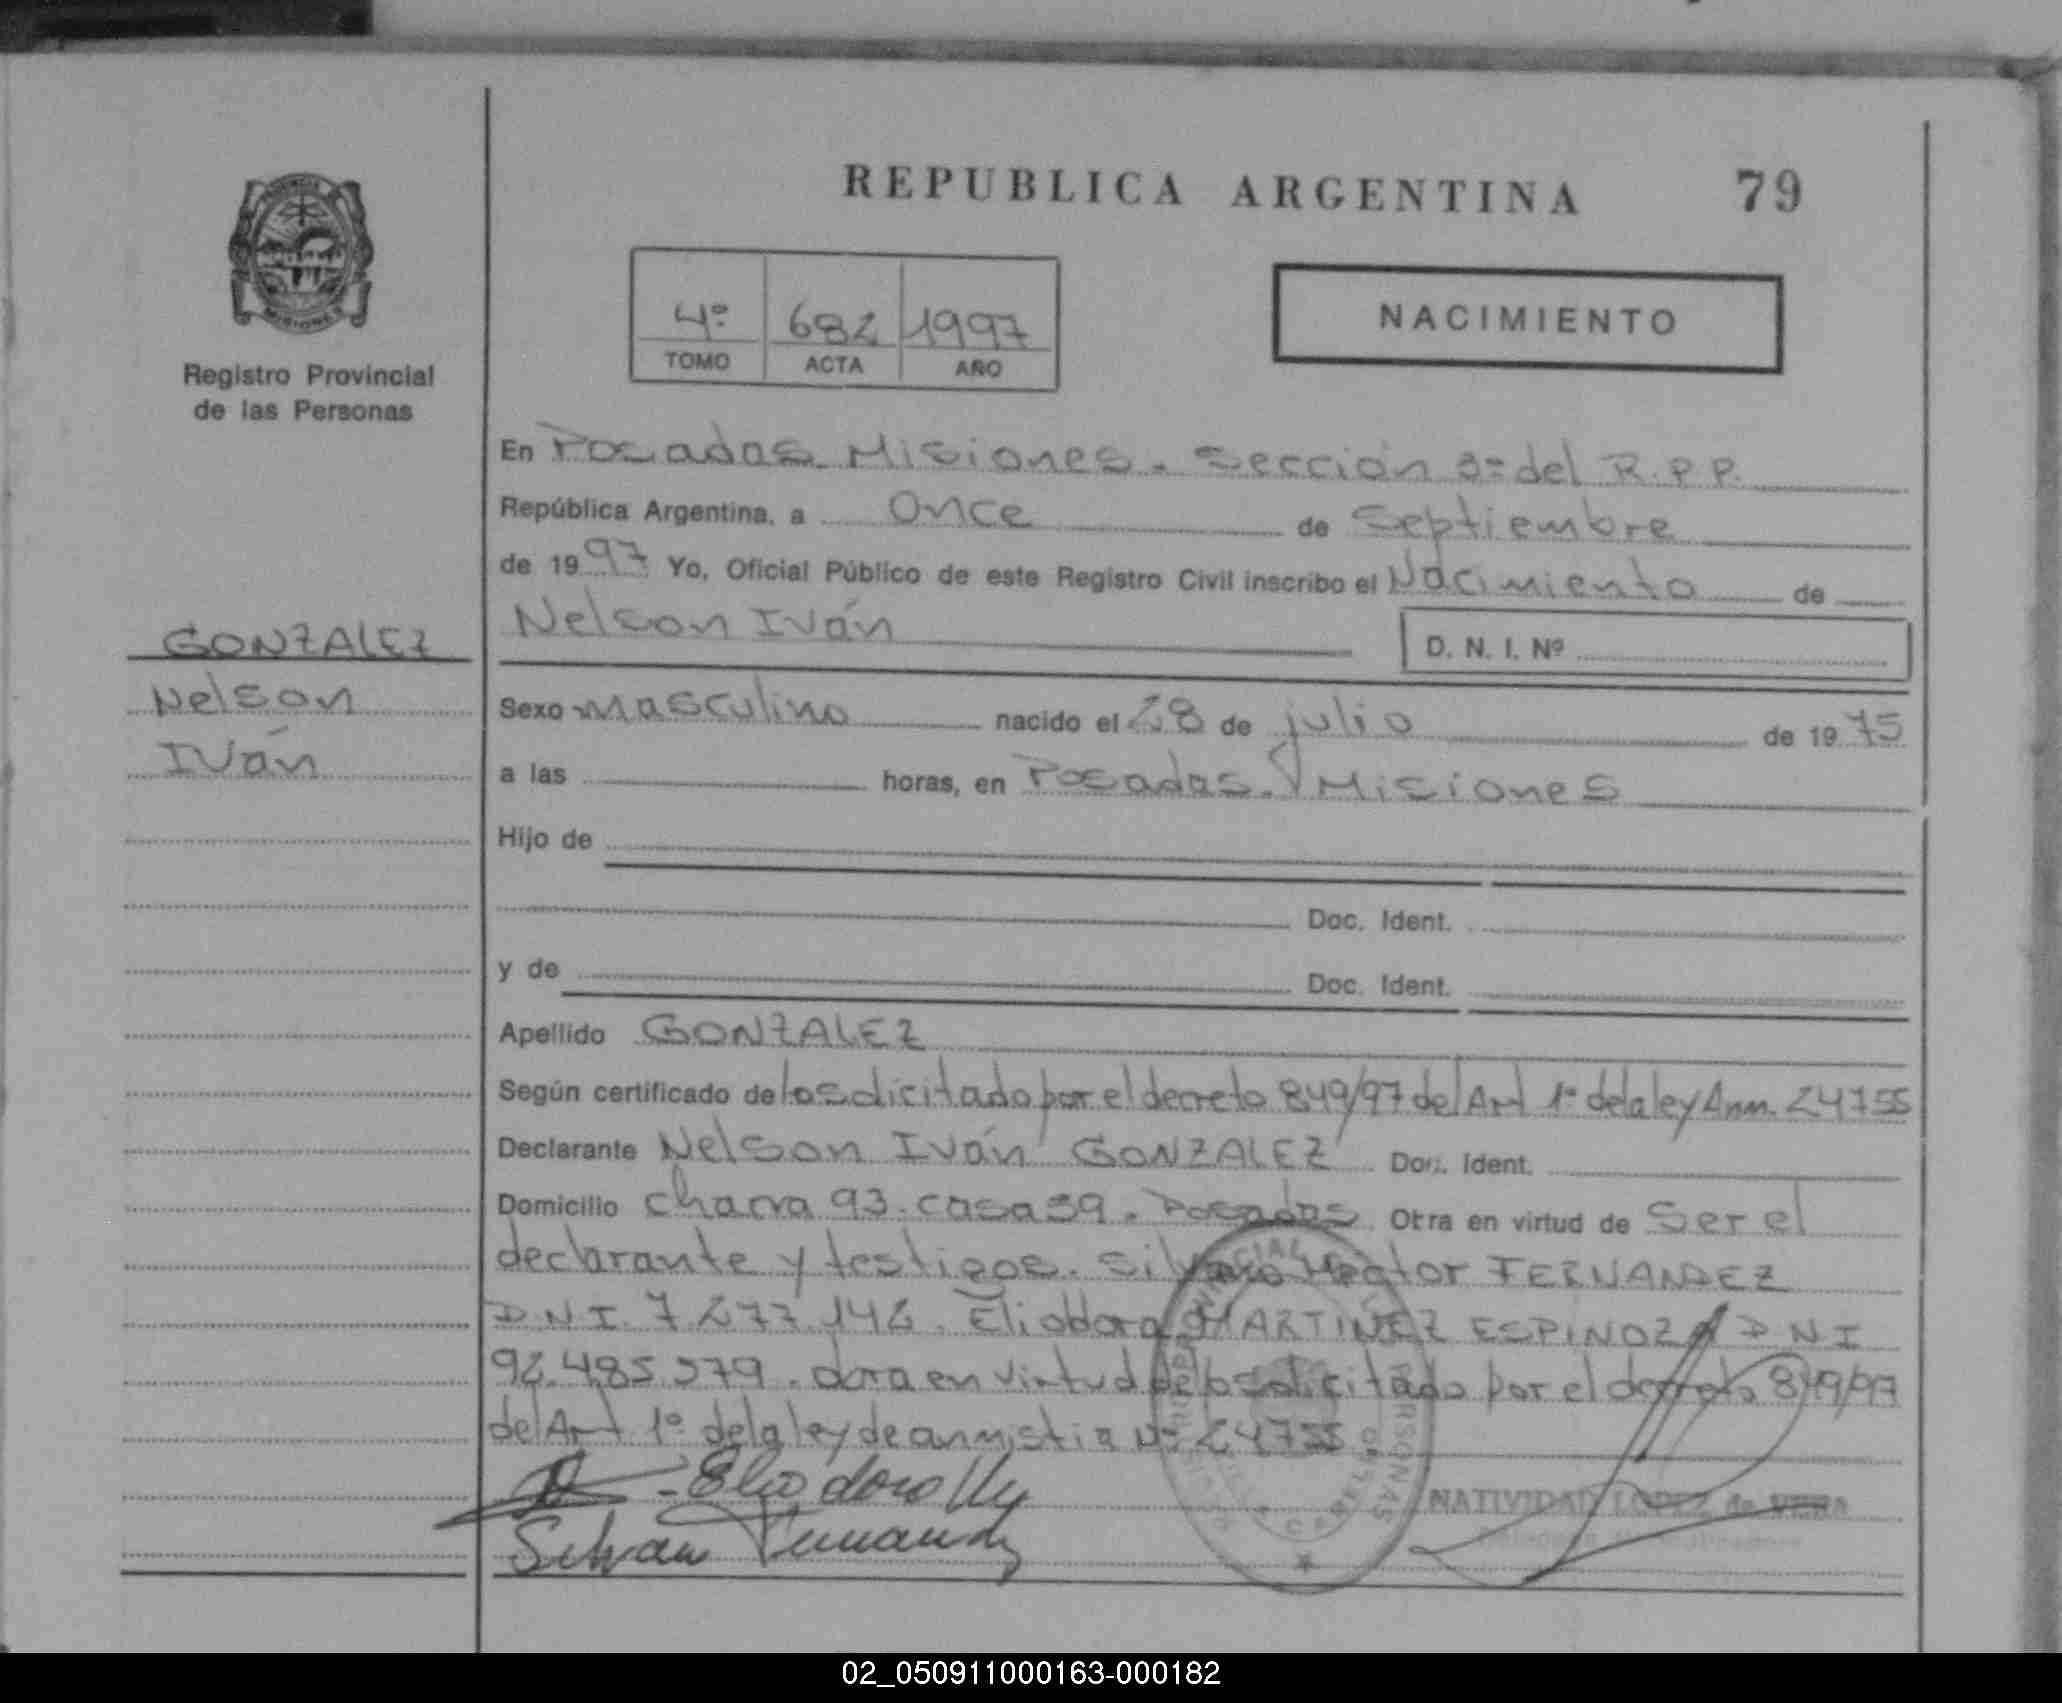 REPUBLICA ARGENTINA 79
Registro Provincial
de las Personas
4º 682 1997
TOMO ACTA AÑO
NACIMIENTO
En Posadas Misiones. Sección 3ª del R.P.P.
República Argentina, a Once de Septiembre
de 1997 Yo, Oficial Público de este Registro Civil inscribo el Nacimiento de
Nelson Iván
D. N. I. Nº
GONZALEZ
Nelson
Iván
Sexo masculino nacido el 28 de julio de 1975
a las horas, en Posadas. Misiones
Hijo de
Doc. Ident.
y de Doc. Ident.
Apellido GONZALEZ
Según certificado de lo solicitado por el decreto 849/97 del Art 1º de la ley Anm. 24755
Declarante Nelson Iván GONZALEZ Doc. Ident.
Domicilio Chacra 93. casa 39. Posadas Obra en virtud de Ser el
declarante y testigos. Silvano Hector FERNANDEZ
D.N.I. 7 277.142. Eliodora MARTINEZ ESPINOZA D N I
92.485.579. obra en virtud de lo solicitado por el decreto 849/97
del Art 1º de la ley de anmistia Nº 24755.
NATIVIDAD LOPEZ de VERA
02_050911000163-000182